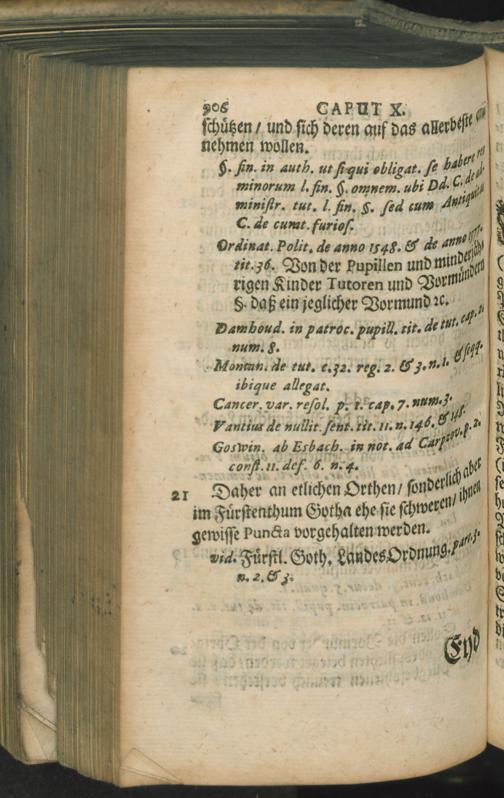 906 CAPUT X.
schützen / und sich deren auf das allerbeste
nehmen wollen.
§. fin. in auth. ut si qui obligat. se habere res
minorum l. fin. §. omnem. ubi Dd. C. de
ministr. tut. l. fin. §. sed cum Antiquitas
C. de curat. furios.
Ordinat. Polit. de anno 1548. & de anno
tit. 36. Von der Pupillen und minderjäh-
rigen Kinder Tutoren und Vormündern
§. daß ein jeglicher Vormund ꝛc.
Damhoud. in patroc. pupill. tit. de tut. cap.
num. 8.
Montan. de tut. c. 32. reg. 2. & 3. n. 1. & seqq.
ibique allegat.
Cancer. var. resol. p. 1. cap. 7. num. 3.
Vantius de nullit. sent. tit. 11. n. 146. & 148.
Goswin. ab Esbach. in not. ad Carpzov. p. 2.
const. 11. def. 6. n. 4.
21 Daher an etlichen Orthen / sonderlich aber
im Fürstenthum Gotha ehe sie schweren / ihnen
gewisse Puncta vorgehalten werden.
vid. Fürstl. Goth. LandesOrdnung. part. 3.
n. 2. & 3.
Eyd